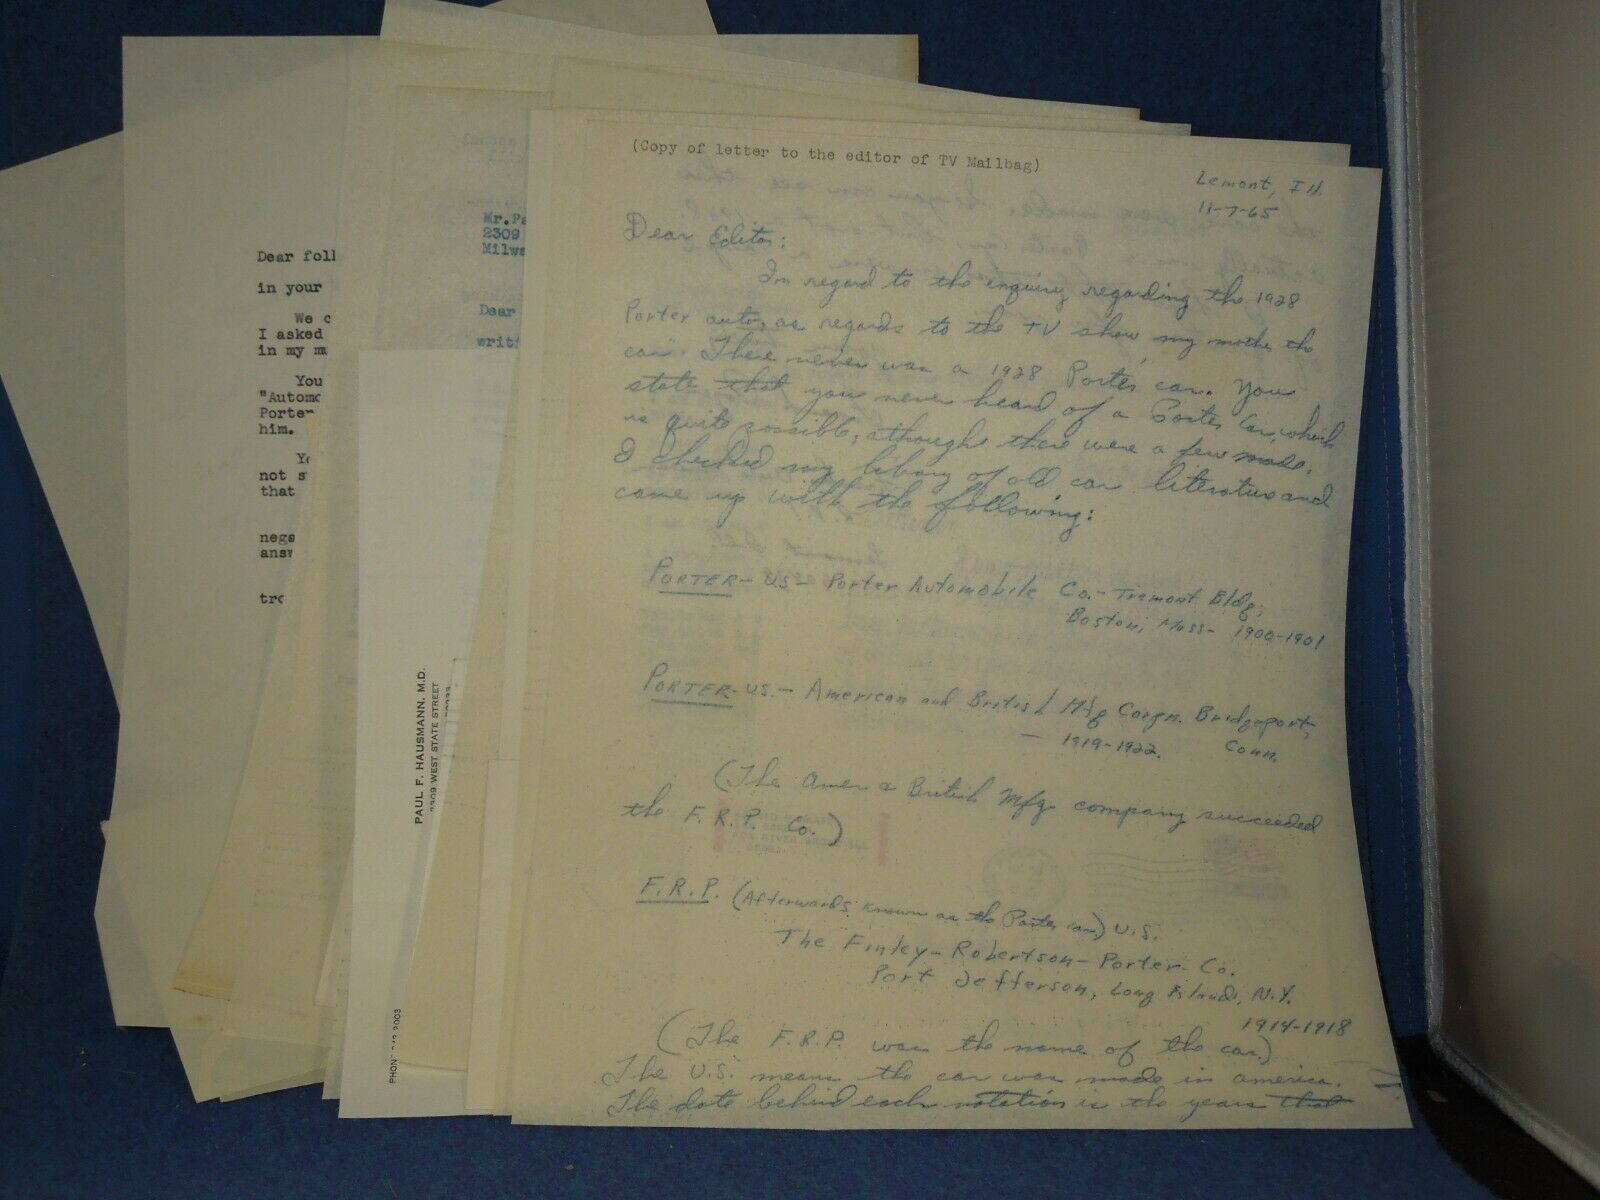 (Copy of letter to the editor of TV Mailbag)
Lemont, Ill.
11-7-65
Dear Editor:
In regard to the inquiry regarding the 1928
Porter auto, as regards to the TV show, my mother the
car". There never was a 1928 Porter car. You
state that you never heard of a Porter Car, which
is quite possible, although there were a few made.
I checked my library of old car literature and
came up with the following:
PORTER - U.S. - Porter Automobile Co. - Tremont Bldg,
Boston, Mass - 1900-1901
PORTER - U.S. - American and British Mfg Corpn. Bridgeport,
- 1919-1922. Conn.
(The Amer & British Mfg company succeeded
the F. R. P. Co.)
F.R.P. (Afterwards known as the Porter car) U.S.
The Finley-Robertson-Porter Co.
Port Jefferson, Long Island, N.Y.
1914-1918
(The F.R.P. was the name of the car)
The U.S. means the car was made in america.
The date behind each notation is the years that
Dear foll
in your
We c
I asked
in my mu
You
"Automo
Porter
him.
Yo
not s
that
nega
answ
tro
Mr. Pa
2309
Milwa
Dear
writi
PAUL F. HAUSMANN, M.D.
2309 WEST STATE STREET